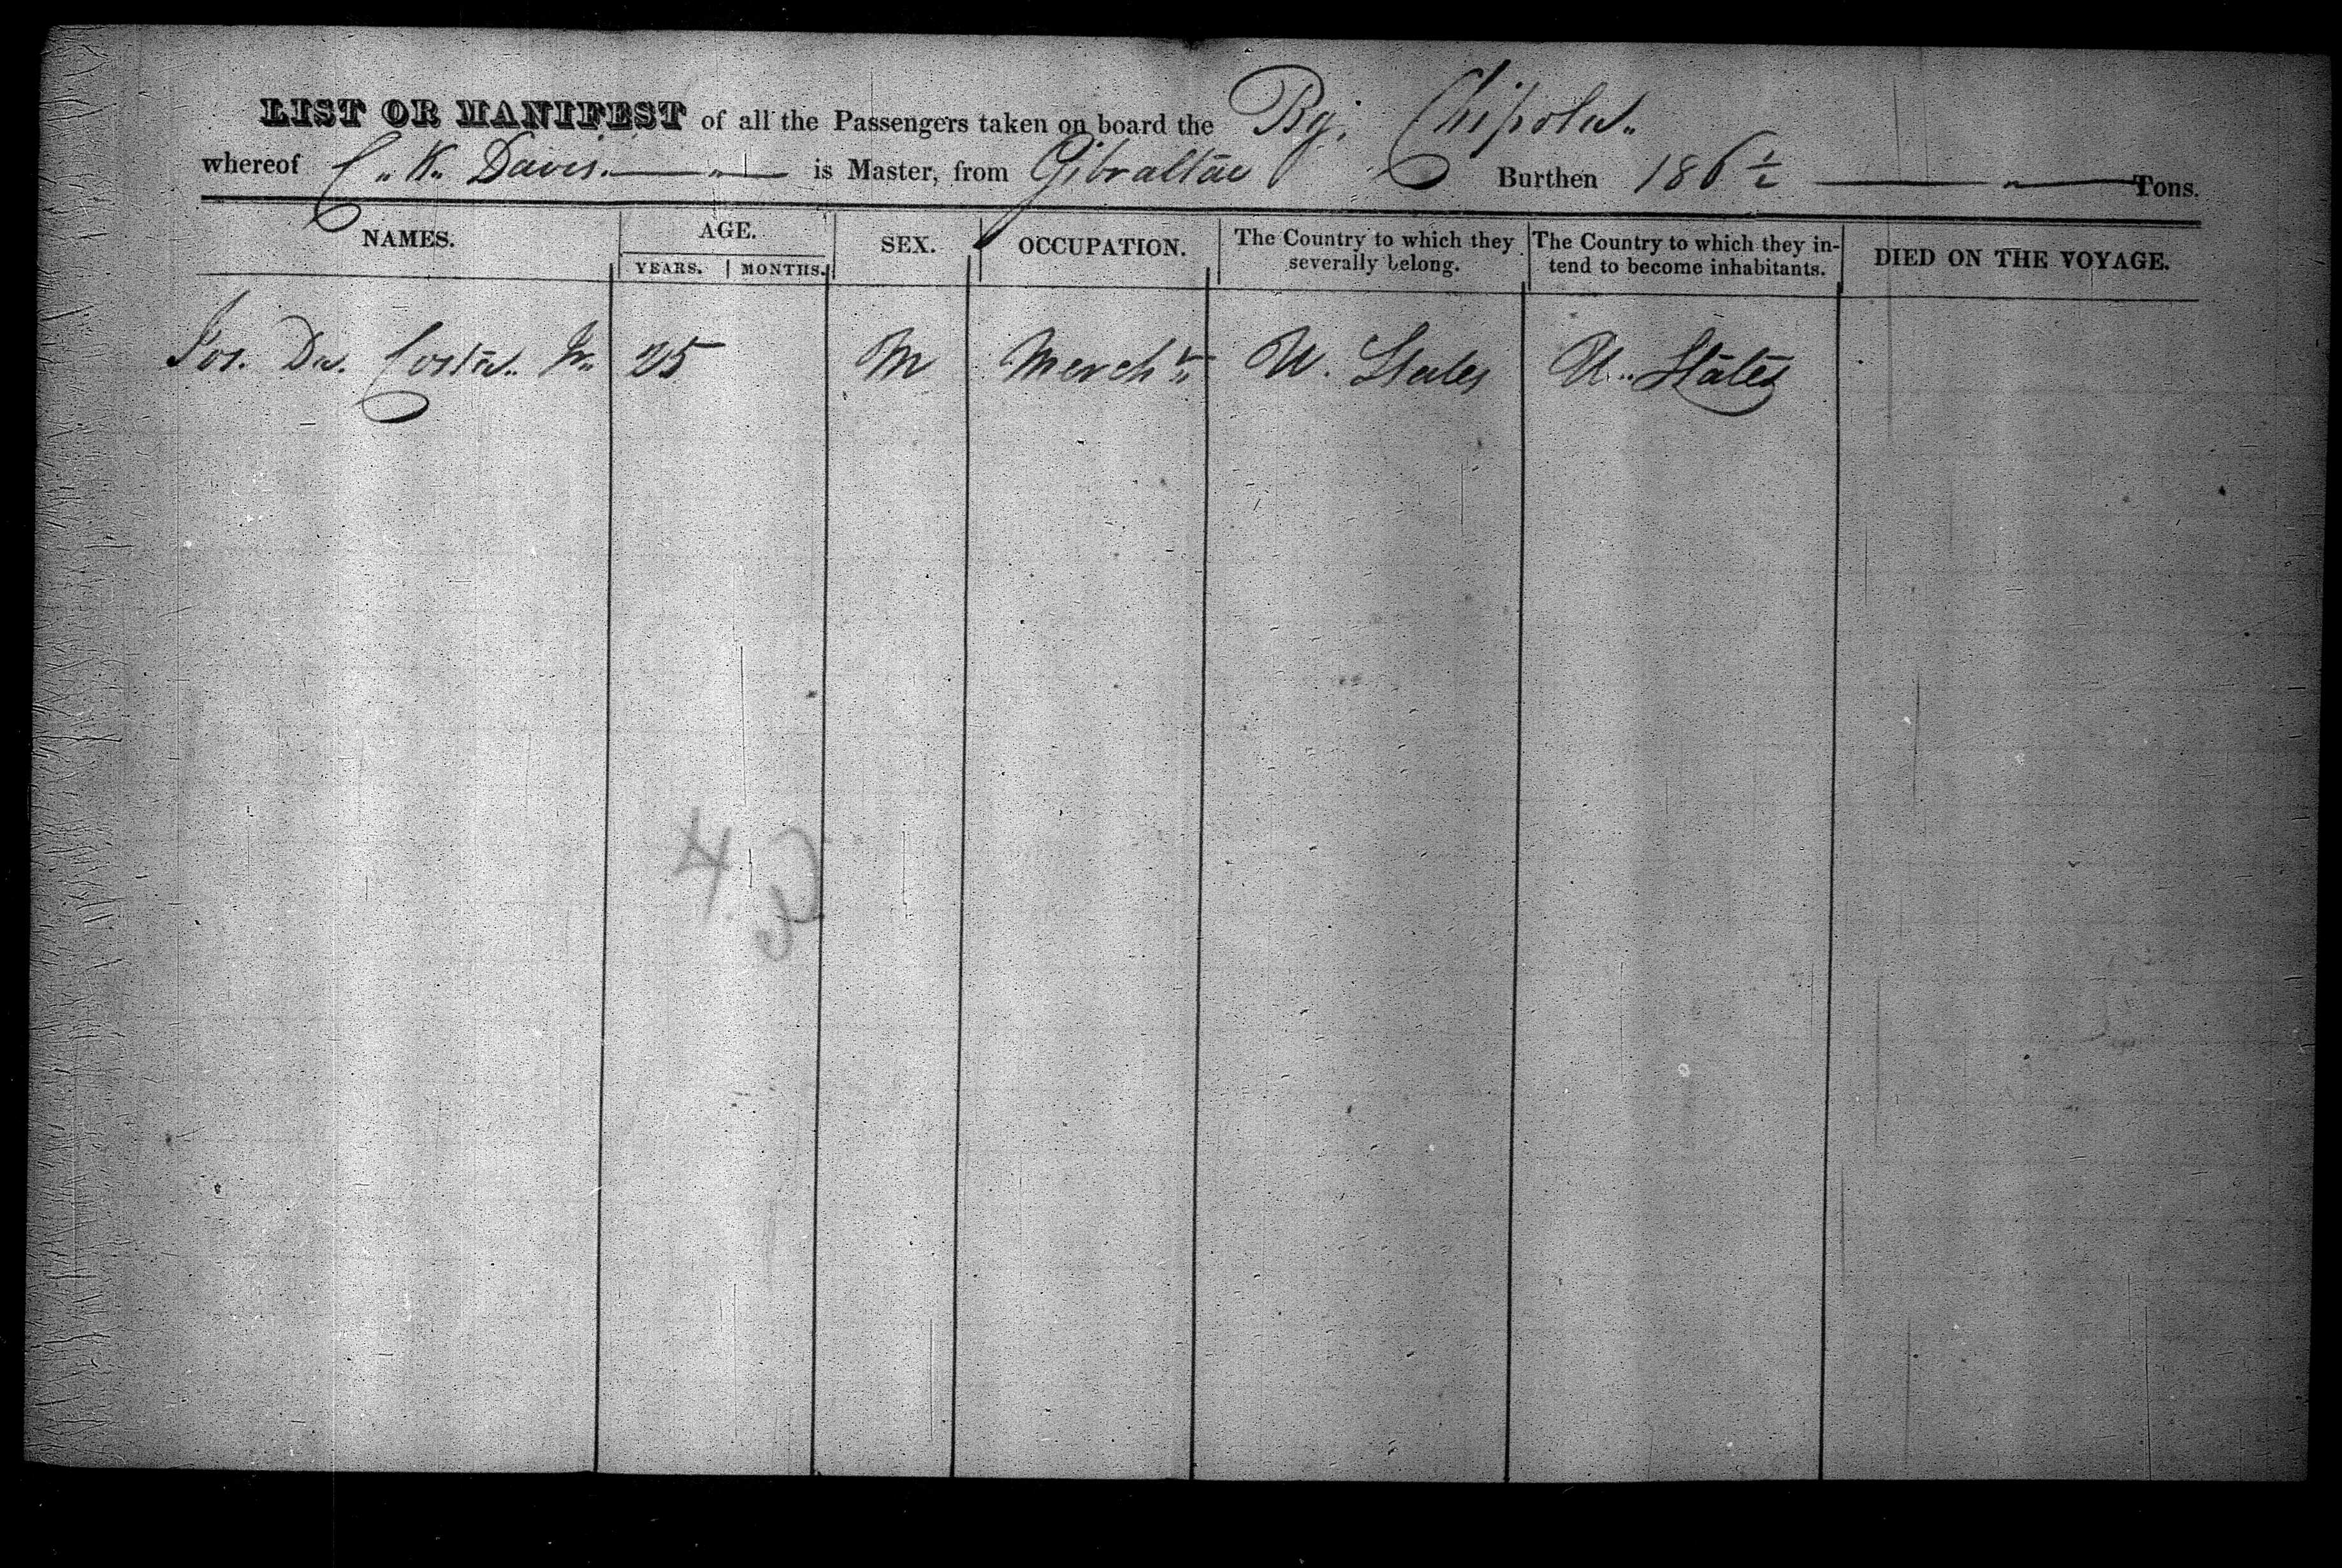 LIST OR MANIFEST of all the Passengers taken on board the Bg. Chipola
whereof C. K. Davis. is Master, from Gibraltar Burthen 186 1/2 Tons.
NAMES. AGE. SEX. OCCUPATION. The Country to which they severally belong. The Country to which they in-tend to become inhabitants. DIED ON THE VOYAGE.
YEARS. MONTHS.
Jos. Da. Costa. Jr. 25 M Mercht U. States U. States